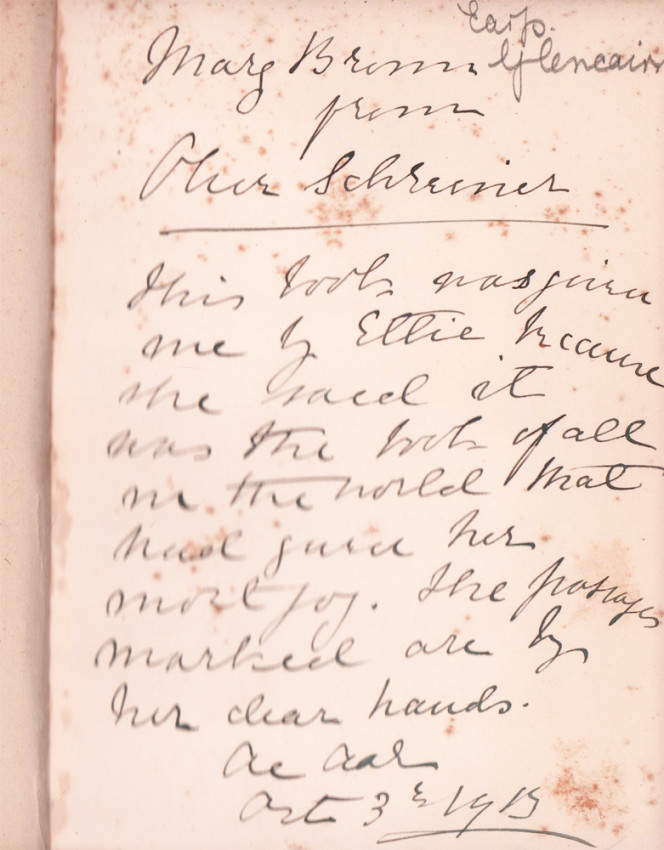 Earp.
Glencairn
Mary Brown
from
Olive Schreiner
This book was given
me by Ettie because
she said it
was the book of all
in the world that
had given her
most joy. The passages
marked are by
her dear hands.
De Aar
Oct 3rd 1913